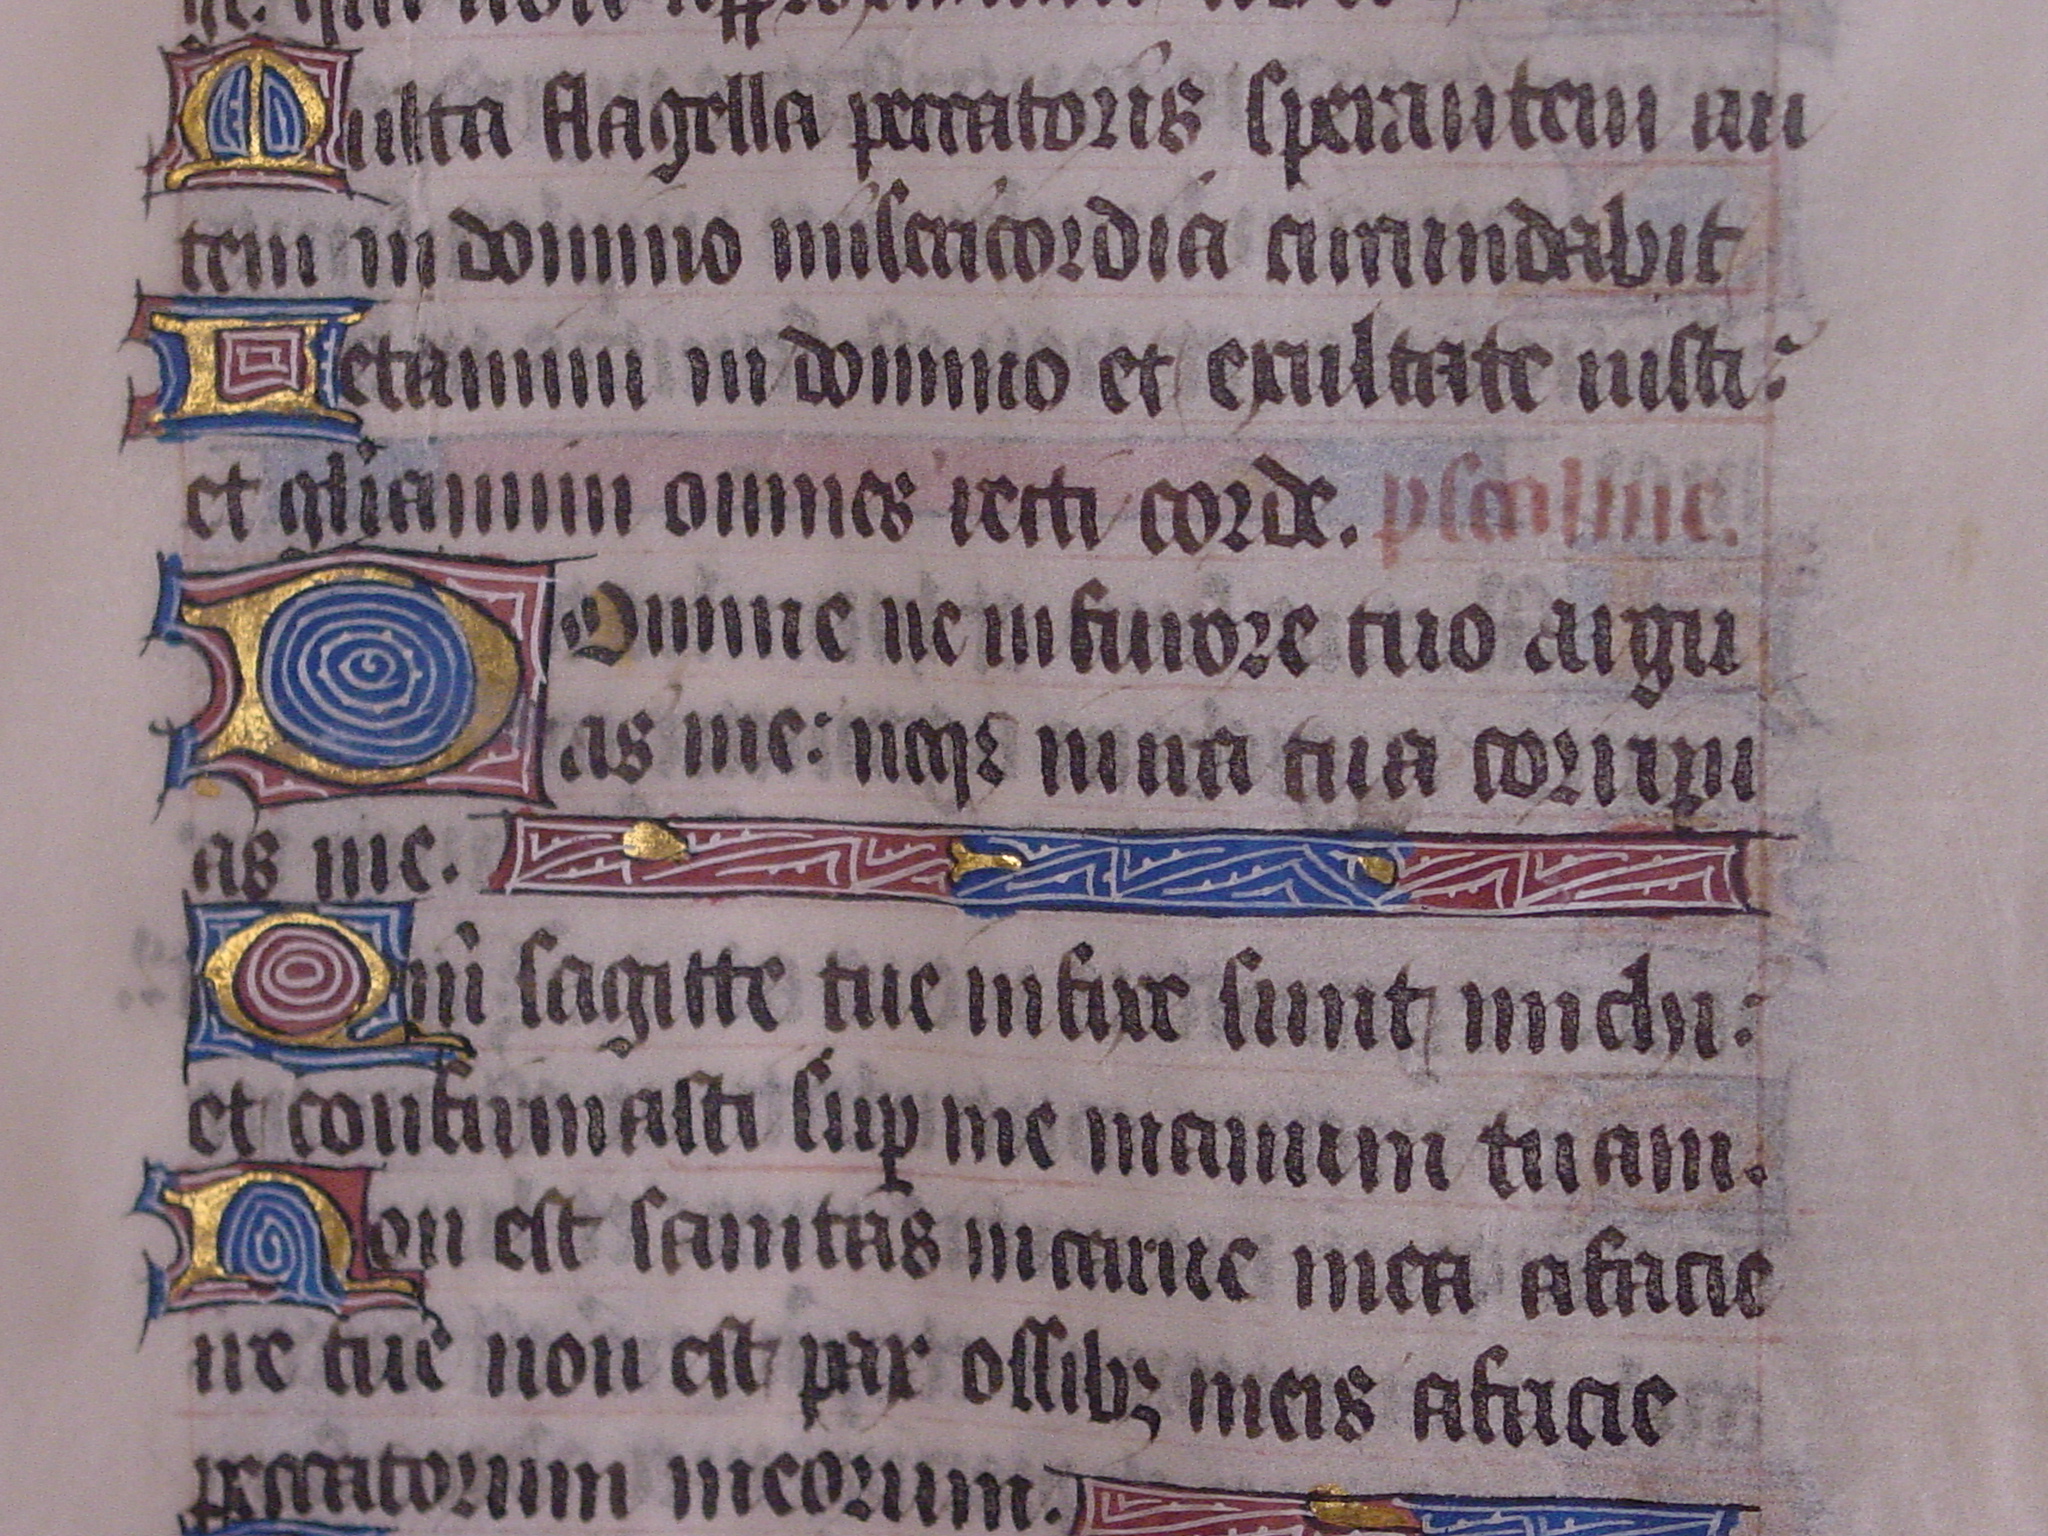 ge. qui non approximant
Multa flagella peccatoris sperantem au
tem in domino misericordia circundabit
Letamini in domino et exultate iusti:
et gliamini omnes recti corde. psalme.
Domine ne in furore tuo argu
as me: neqz in ira tua corripi
as me.
Qm̄ sagitte tue infixe sunt michi:
et confirmasti sup me manum tuam.
Non est sanitas in carne mea a facie
ire tue non est pax ossibz meis a facie
peccatorum meorum.